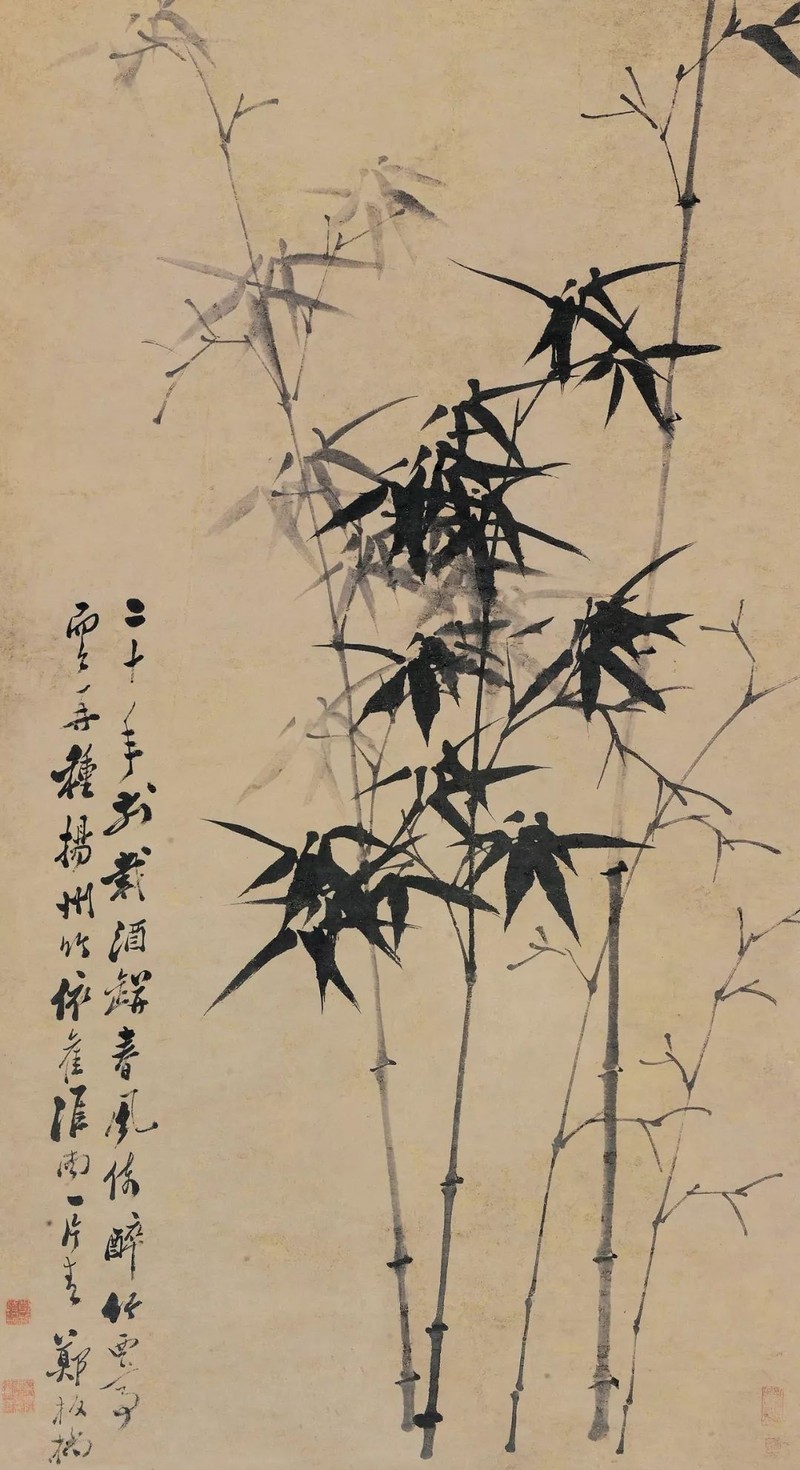 二十年前載酒缾春風倚醉竹西亭
而今再種揚州竹依舊淮南一片青 鄭板橋